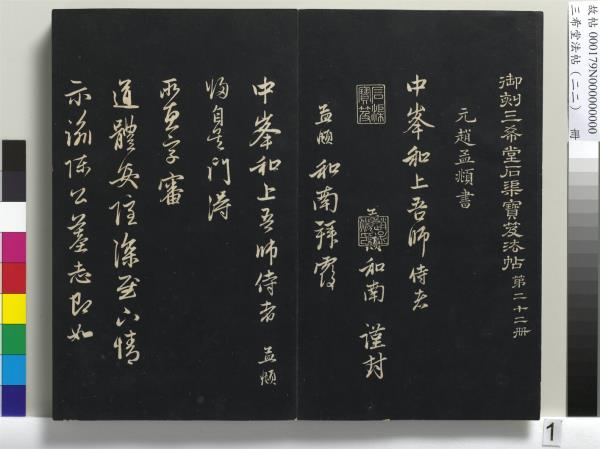 御刻三希堂石渠寶笈法帖 第二十二冊
元趙孟頫書
中峯和上吾師侍者
孟頫 和南 謹封
孟頫 和南拜覆
中峯和上吾師侍者 孟頫
歸自吳門得
所惠字審
道體安隱深慰下情
示諭陳公墓志即如
石渠寶笈
故帖 000179N000000000
三希堂法帖（二二）
1